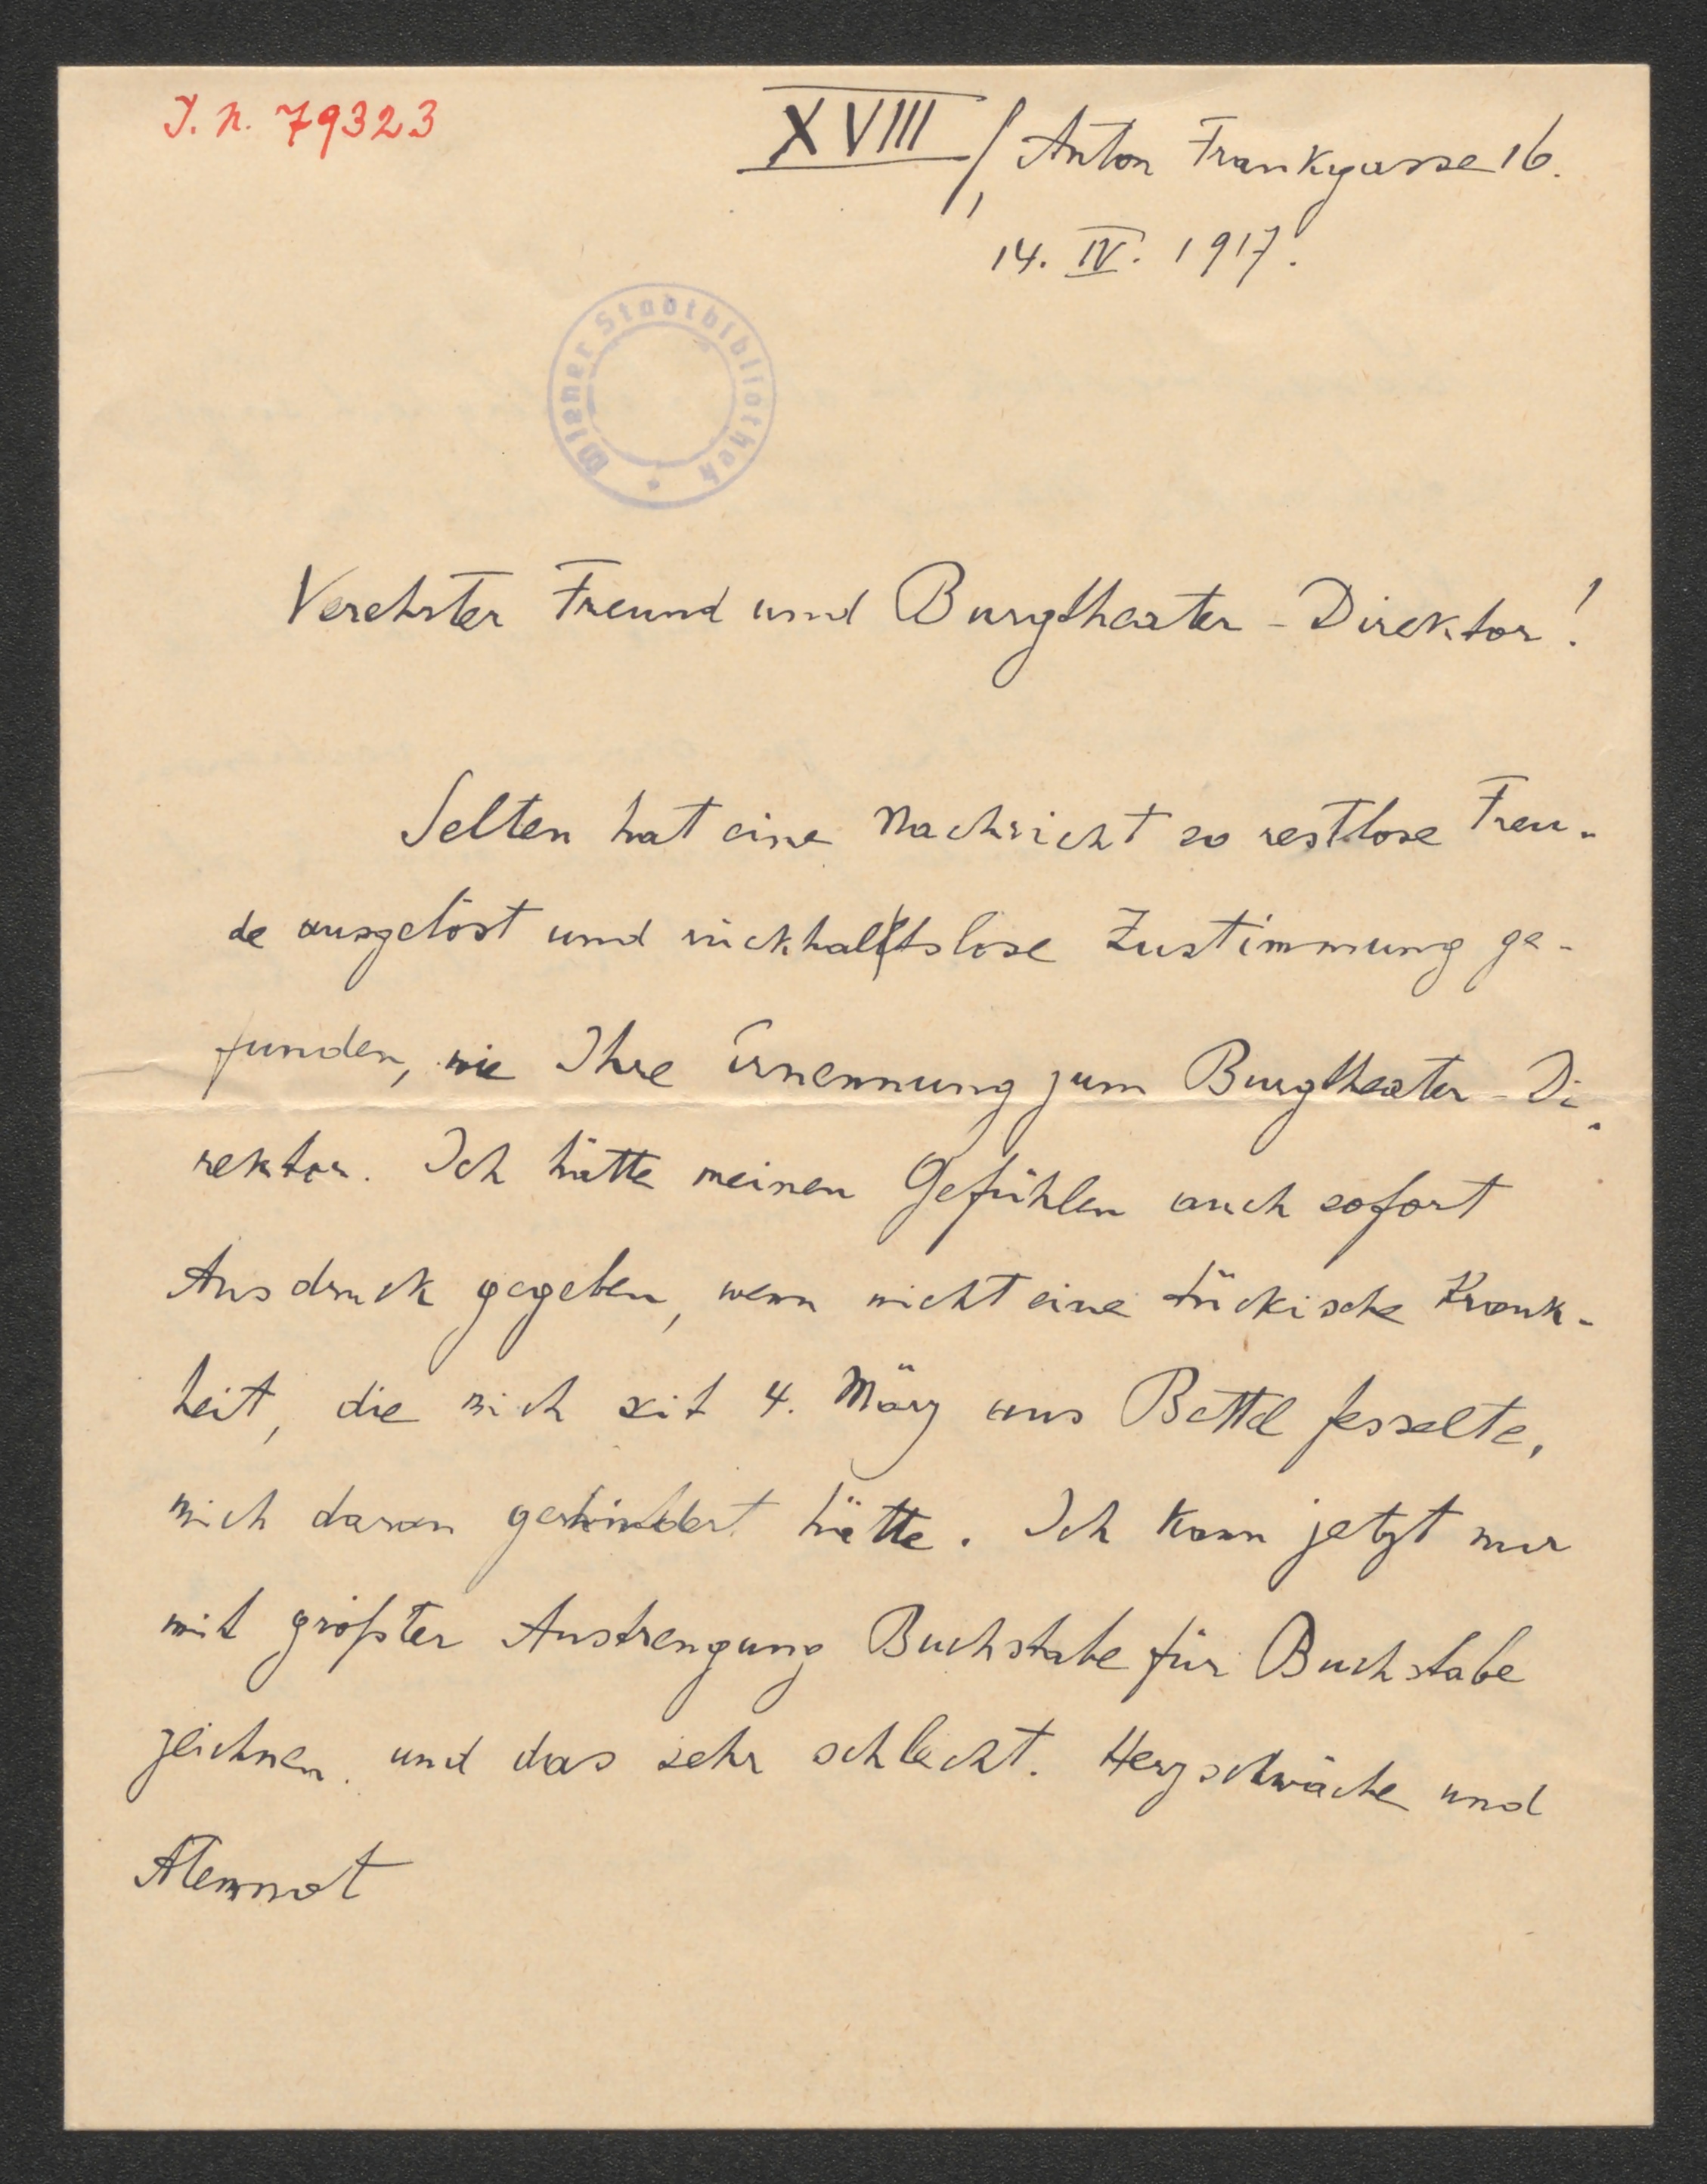 J. N. 79323
XVIII/, Anton Frankgasse 16.
14. IV. 1917.
Wiener Stadtbibliothek
Verehrter Freund und Burgtheater-Direktor!
Selten hat eine Nachricht so restlose Freu-
de ausgelöst und rückhaltslose Zustimmung ge-
funden, wie Ihre Ernennung zum Burgtheater-Di-
rektor. Ich hätte meinen Gefühlen auch sofort
Ausdruck gegeben, wenn nicht eine tückische Krank-
heit, die mich seit 4. März ans Bett fesselte,
mich daran gehindert hätte. Ich kann jetzt nur
mit größter Anstrengung Buchstabe für Buchstabe
zeichnen und das sehr schlecht. Herzschwäche und
Atemnot